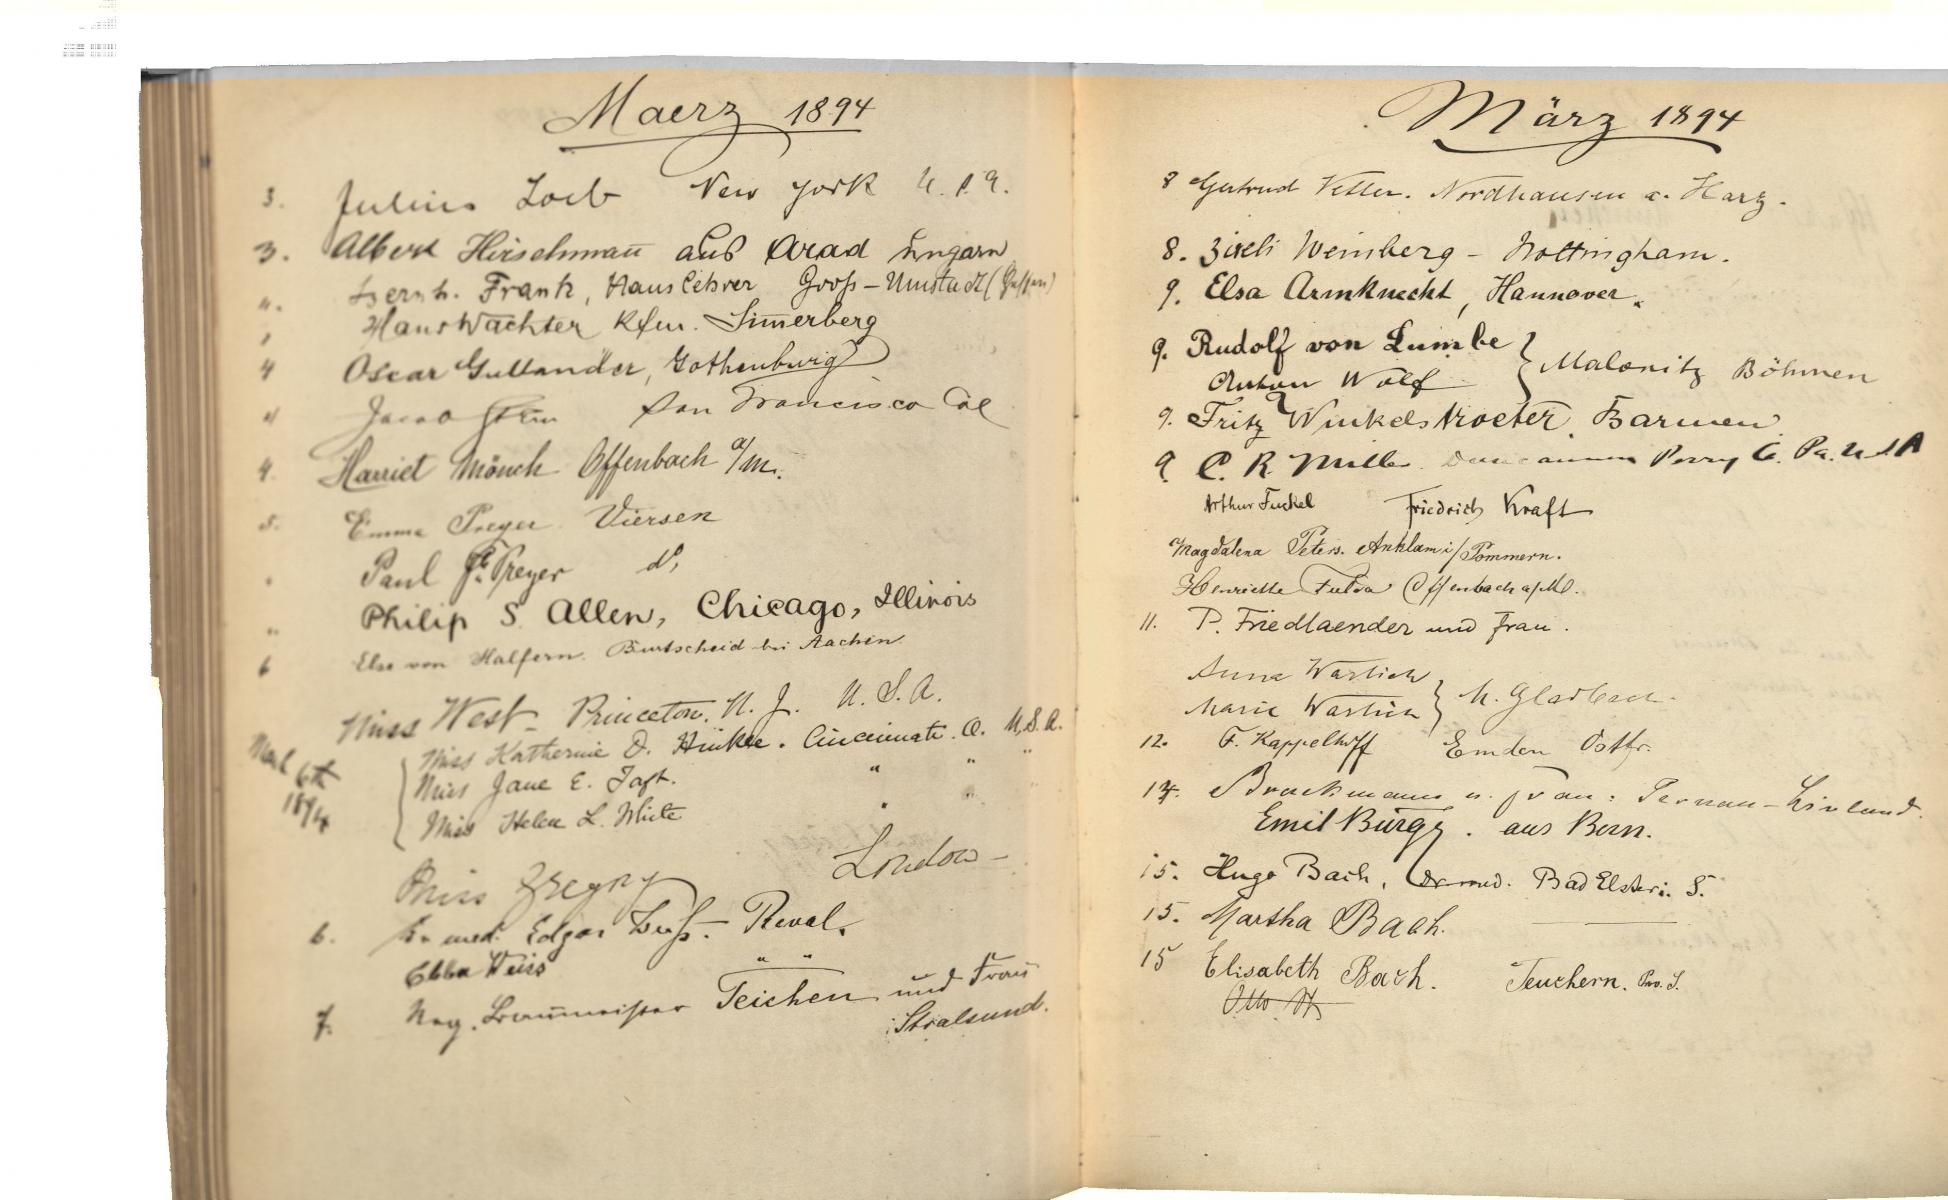 Maerz 1894
3. Julius Loeb New York U.S.A.
3. Albert Hirschmañ aus Arad Ungarn
4. Bernh. Frank, Hauslehrer Groß-Umstadt (Hessen)
Hans Wachter Kfm. Sim̄erberg
4 Oscar Gullander, Gothenburg
4 Jacob Stern San Francisco Cal
4. Harriet Mönch Offenbach a/m.
5. Emma Preyer Viersen
" Paul Preyer do,
" Philip S. Allen, Chicago, Illinois
6 Else von Halfern. Burtscheid bei Aachen
Miss West – Princeton. N. J. U. S. A.
March 6th 1894
Miss Katherine D. Hinkle. Cincinnati. O. U.S.A.
Miss Jane E. Taft. " " "
Miss Helen L. White " "
Miss Gregory London –
6. Dr med. Edgar Weiß – Reval.
Ebba Weiss " "
7. Reg. Baumeister Teichen und Frau
Stralsund.
März 1894
8 Gertrud Vetter. Nordhausen a. Harz.
8. Weinberg – Nottingham.
9. Elsa Armknecht, Hannover.
9. Rudolf von Lumbe
Anton Wolf } Malonitz Böhmen
9. Fritz Winkelstroeter, Barmen
9. C. R. Miller Duncannon Perry Co. Pa. U S A
Arthur Fuckel Friedrich Kraft
Magdalena Peters. Anklam i/Pommern.
Henriette Offenbach a/M.
11. P. Friedlaender und Frau.
Anna Warlich
Marie Warlich } M. Gladbach.
12. F. Kappelhoff Emden Ostfr.
14. Brackmann u. Frau. Pernau – Livland.
Emil Bürgy. aus Bern.
15. Hugo Bach, Dr med. Bad Elster i. S.
15. Martha Bach. —
15 Elisabeth Bach. Teuchern. Prv. S.
Otto H